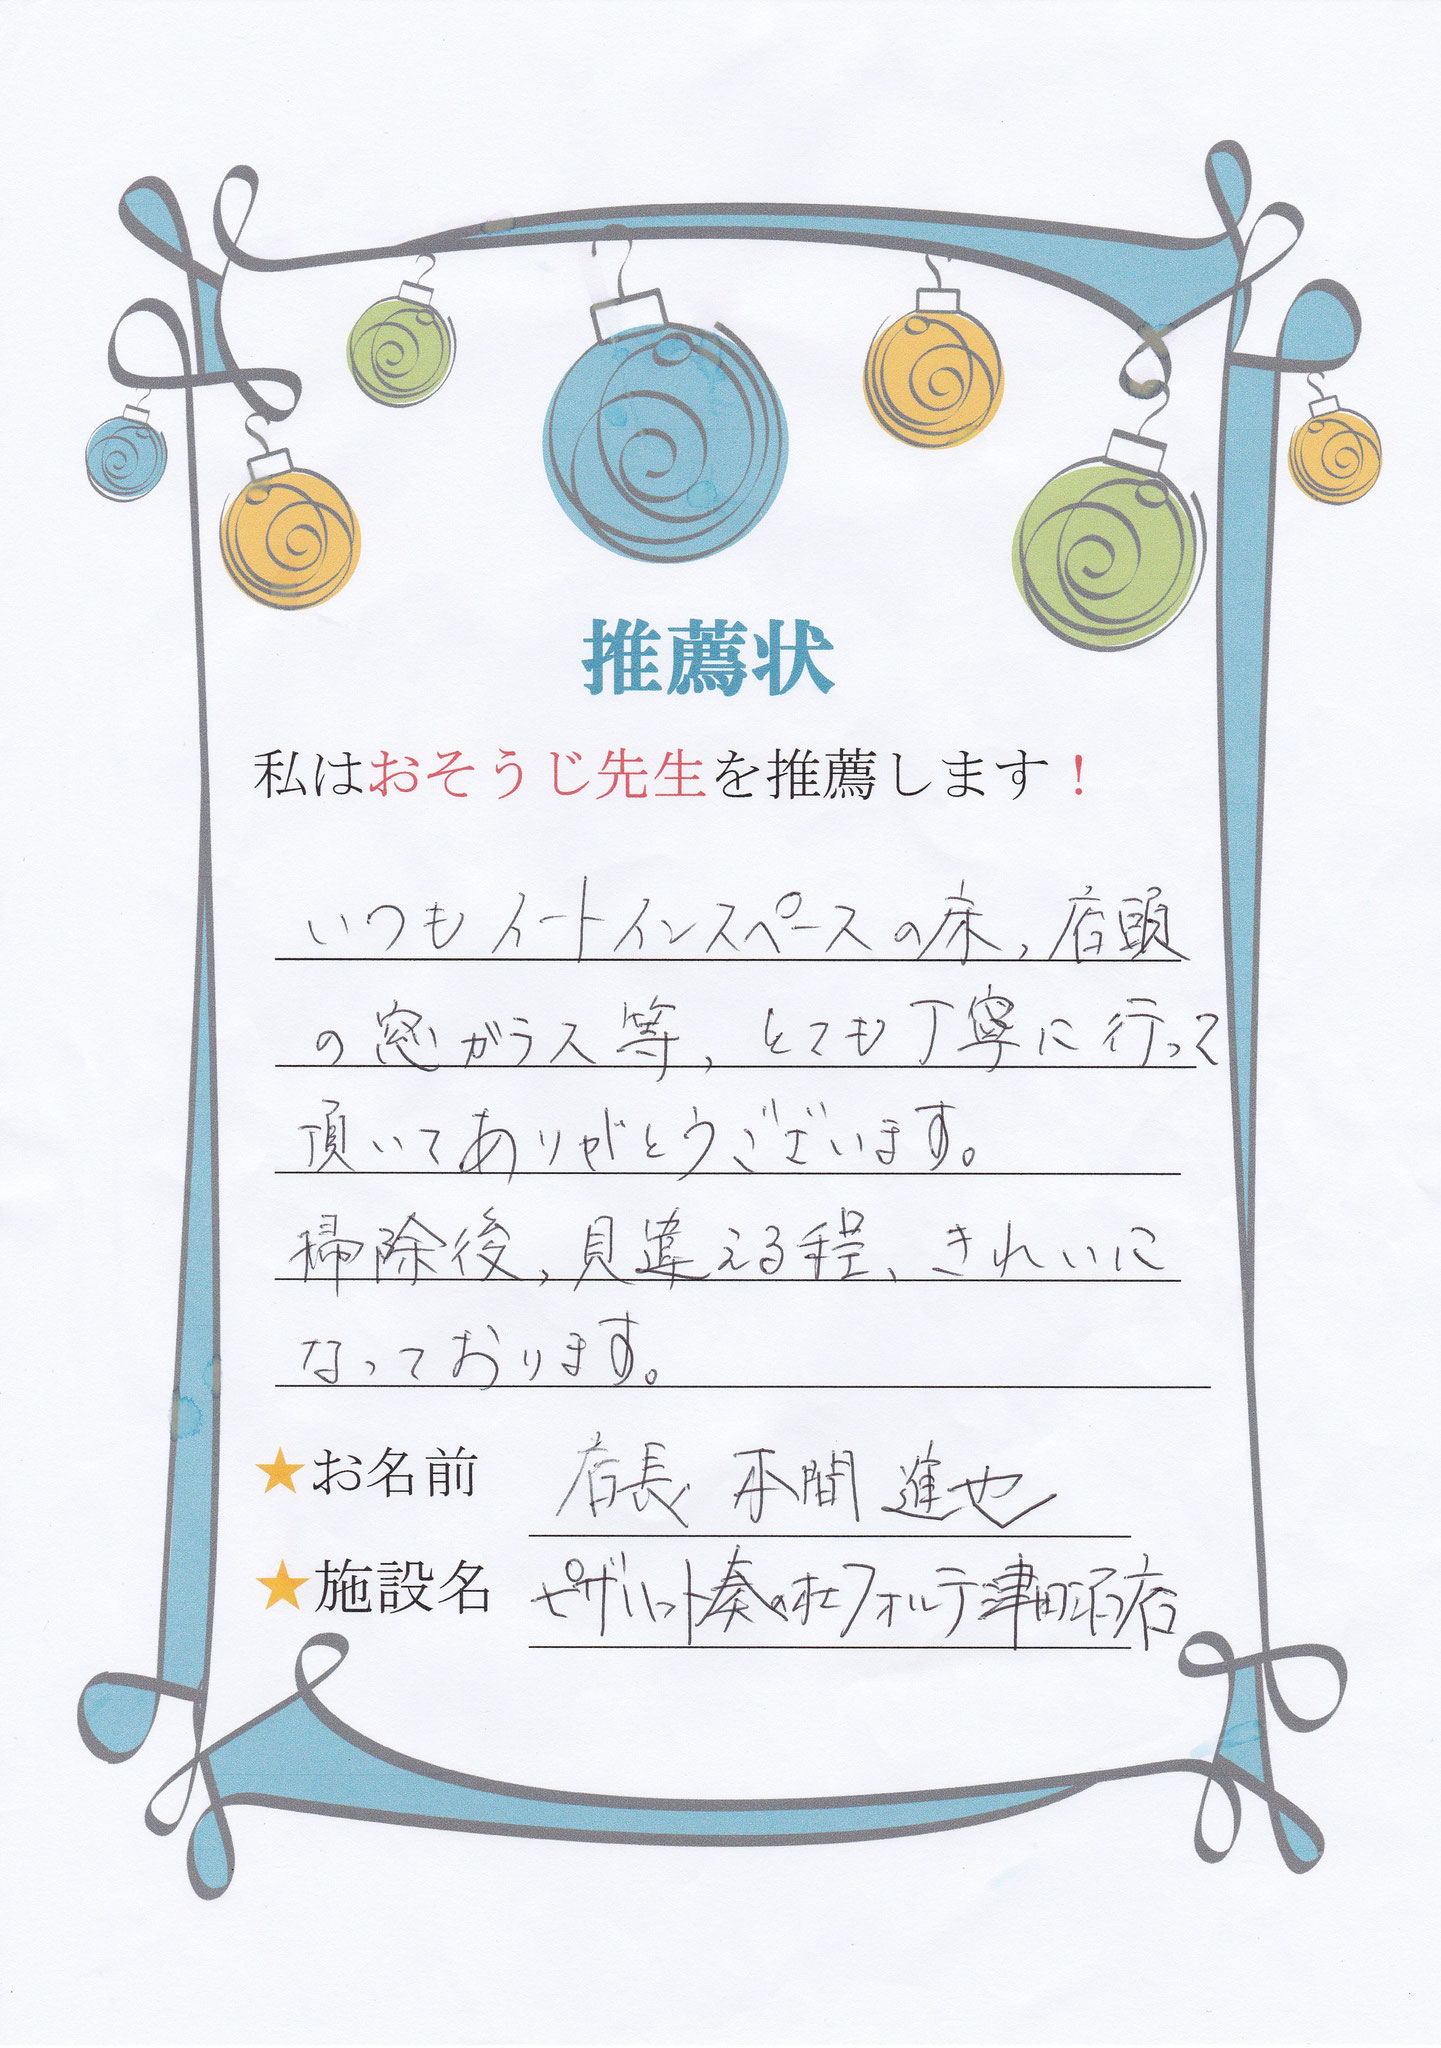 推薦状
私はおそうじ先生を推薦します！
いつもイートインスペースの床，店頭
の窓ガラス等，とても丁寧に行って
頂いてありがとうございます。
掃除後，見違える程、きれいに
なっております。
★お名前 店長 本間 進也
★施設名 ピザハット奏の杜フォルテ津田沼店